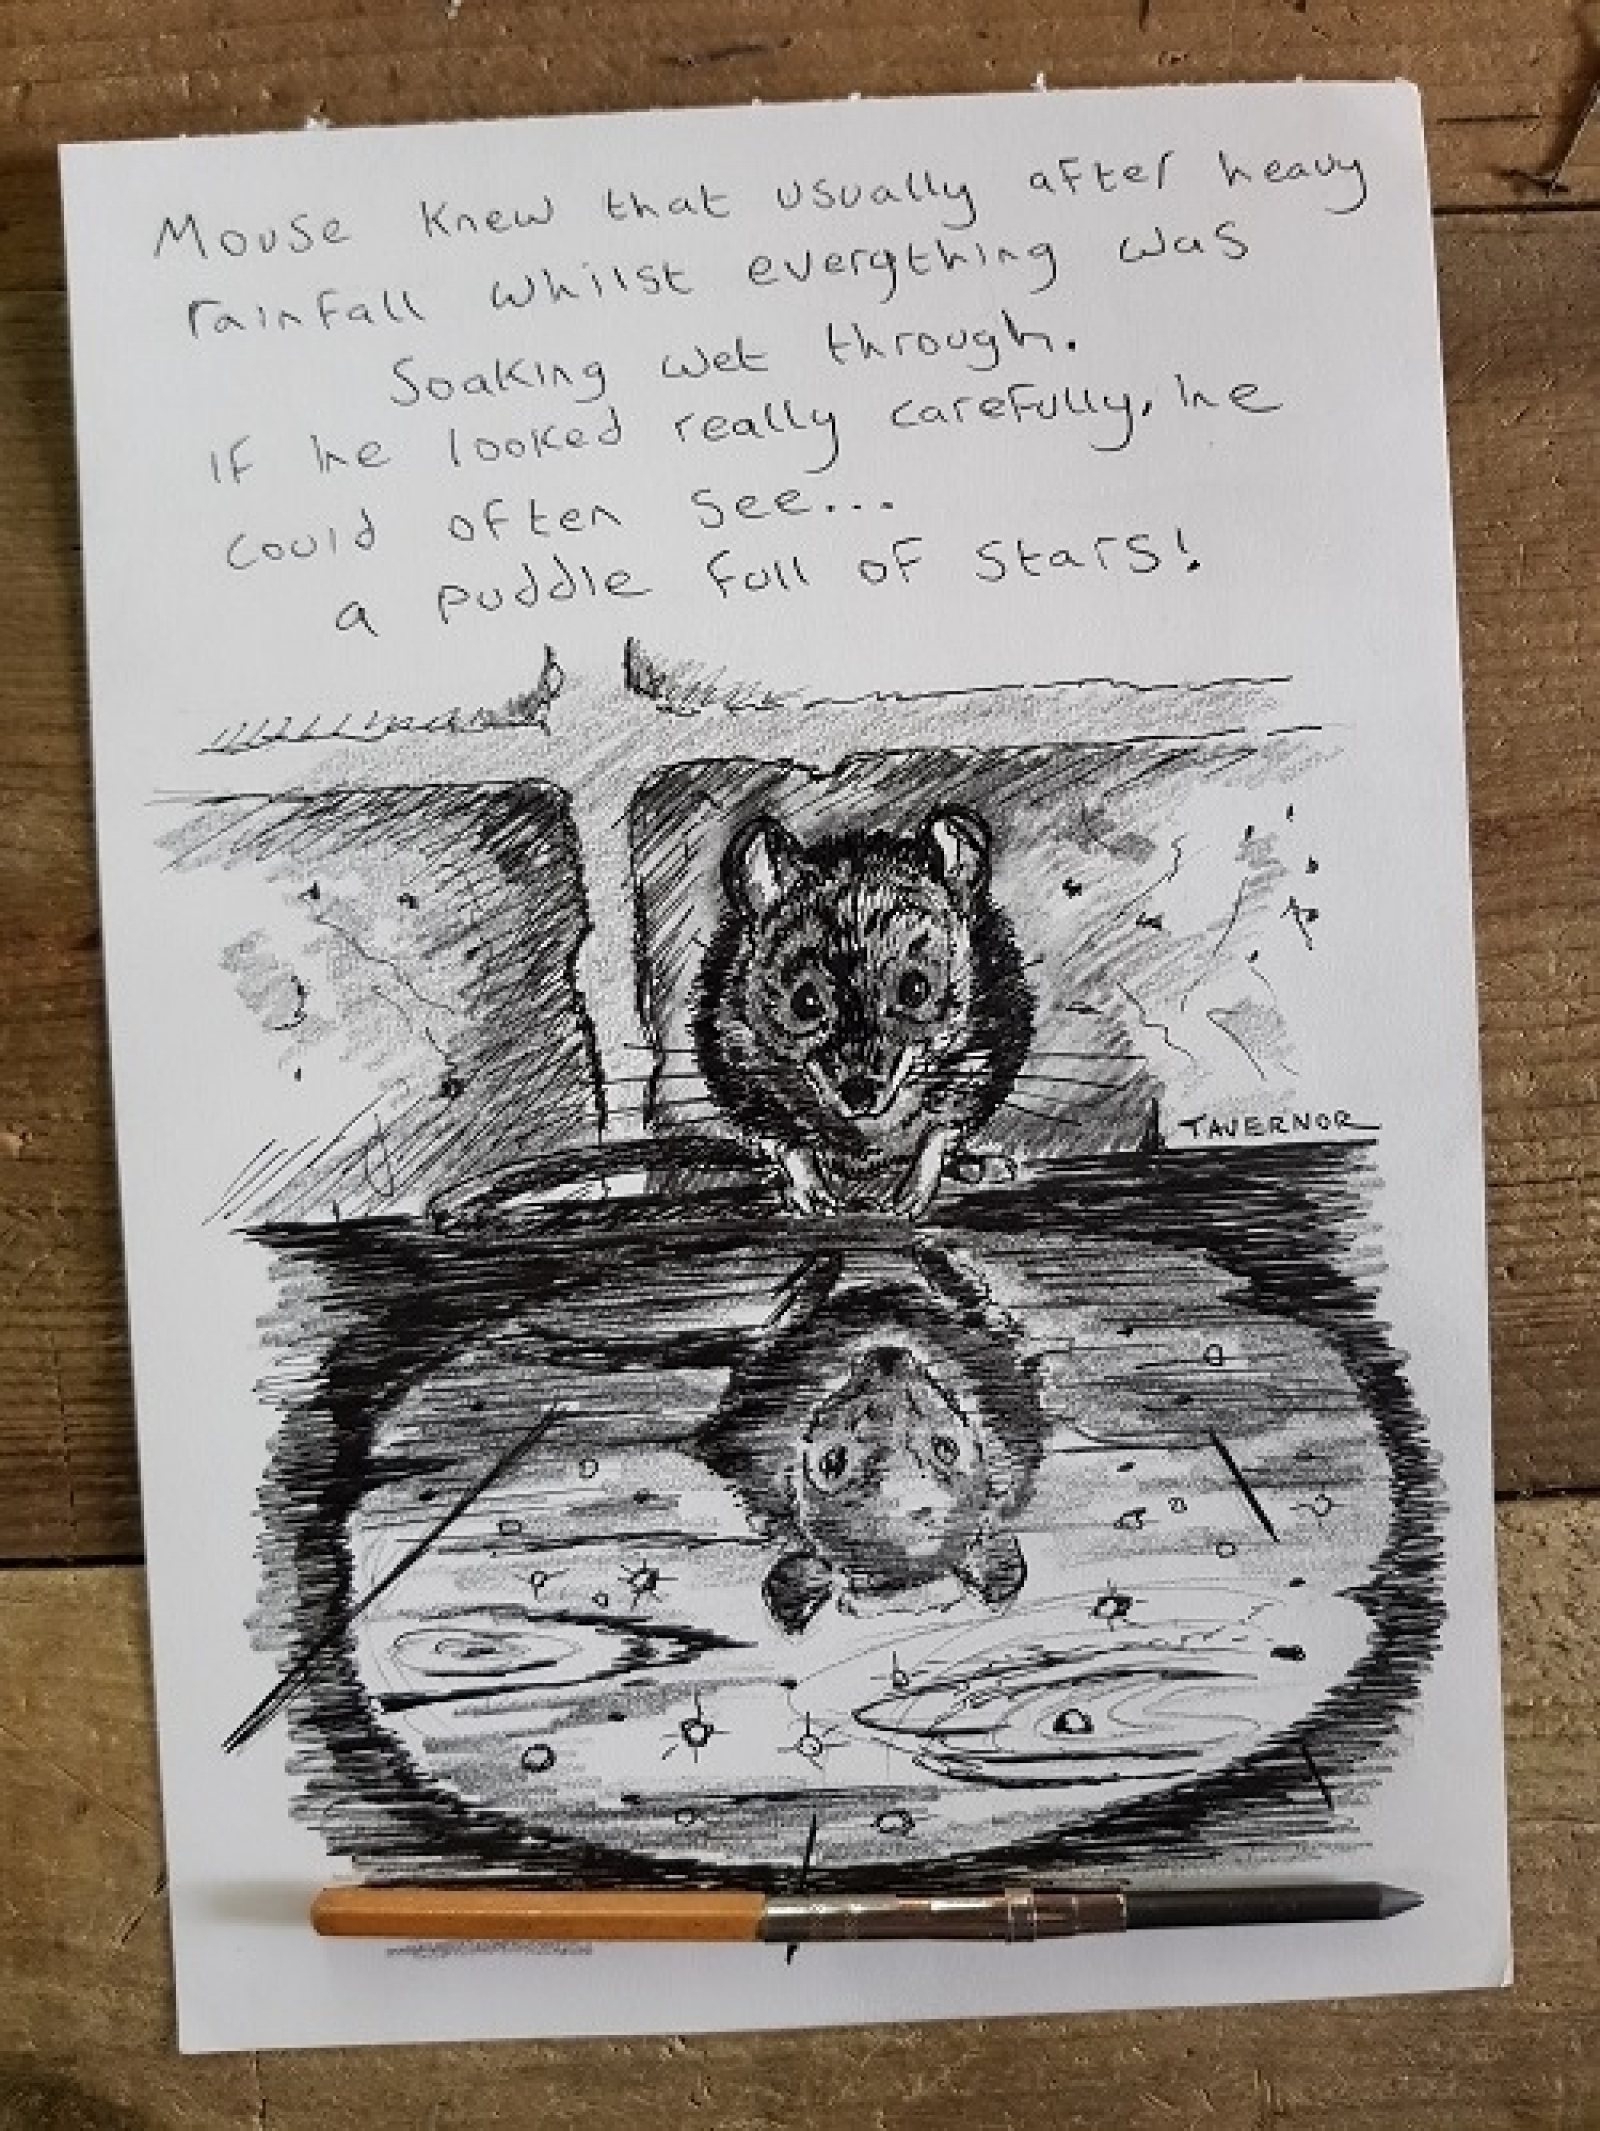 Mouse knew that usually after heavy
rainfall whilst everything was
Soaking wet through.
If he looked really carefully, he
could often see...
a puddle full of stars!
TAVERNOR